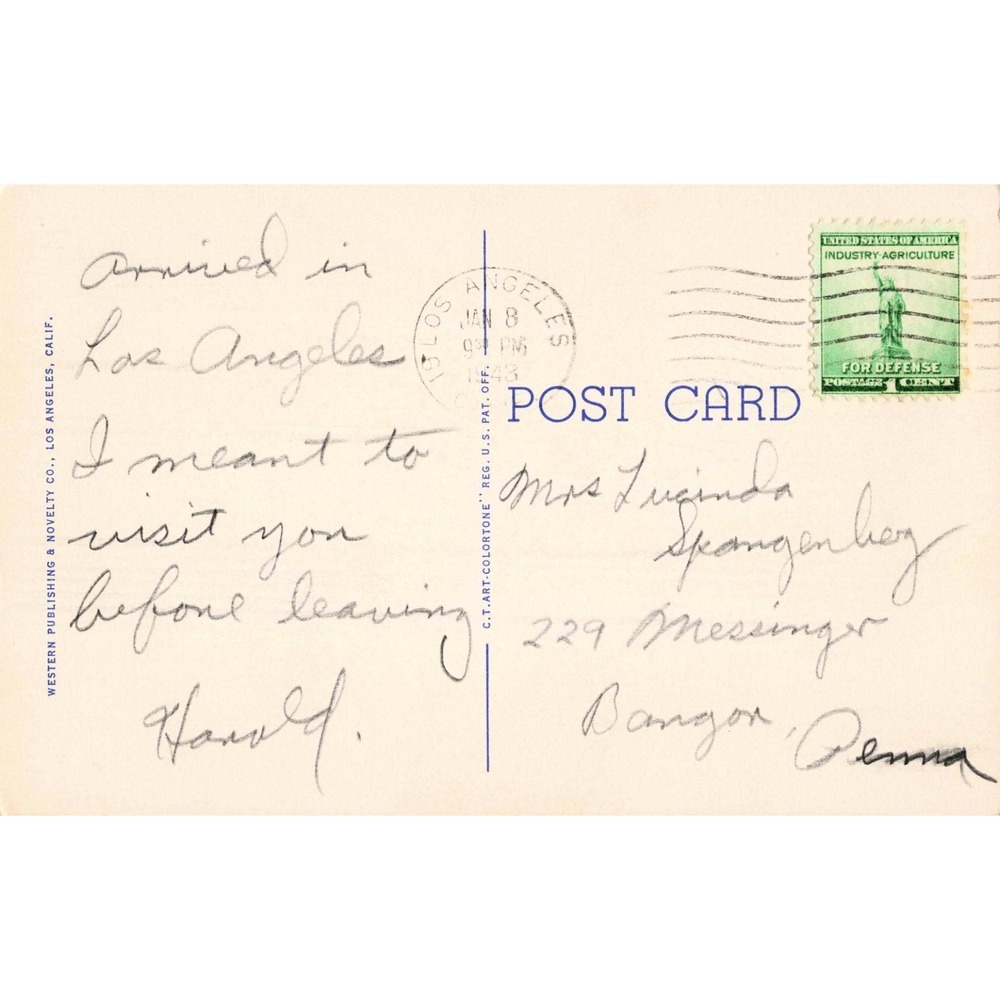 arrived in
Los Angeles
I meant to
visit you
before leaving
Harold.
WESTERN PUBLISHING & NOVELTY CO., LOS ANGELES, CALIF.
C.T. ART-COLORTONE" REG. U.S. PAT. OFF.
LOS ANGELES
JAN 8
9 30 PM
1943
POST CARD
UNITED STATES OF AMERICA
INDUSTRY·AGRICULTURE
FOR DEFENSE
POSTAGE 1 CENT
Mrs Lucinda
Spangenberg
229 Messinger
Bangor,
Penna